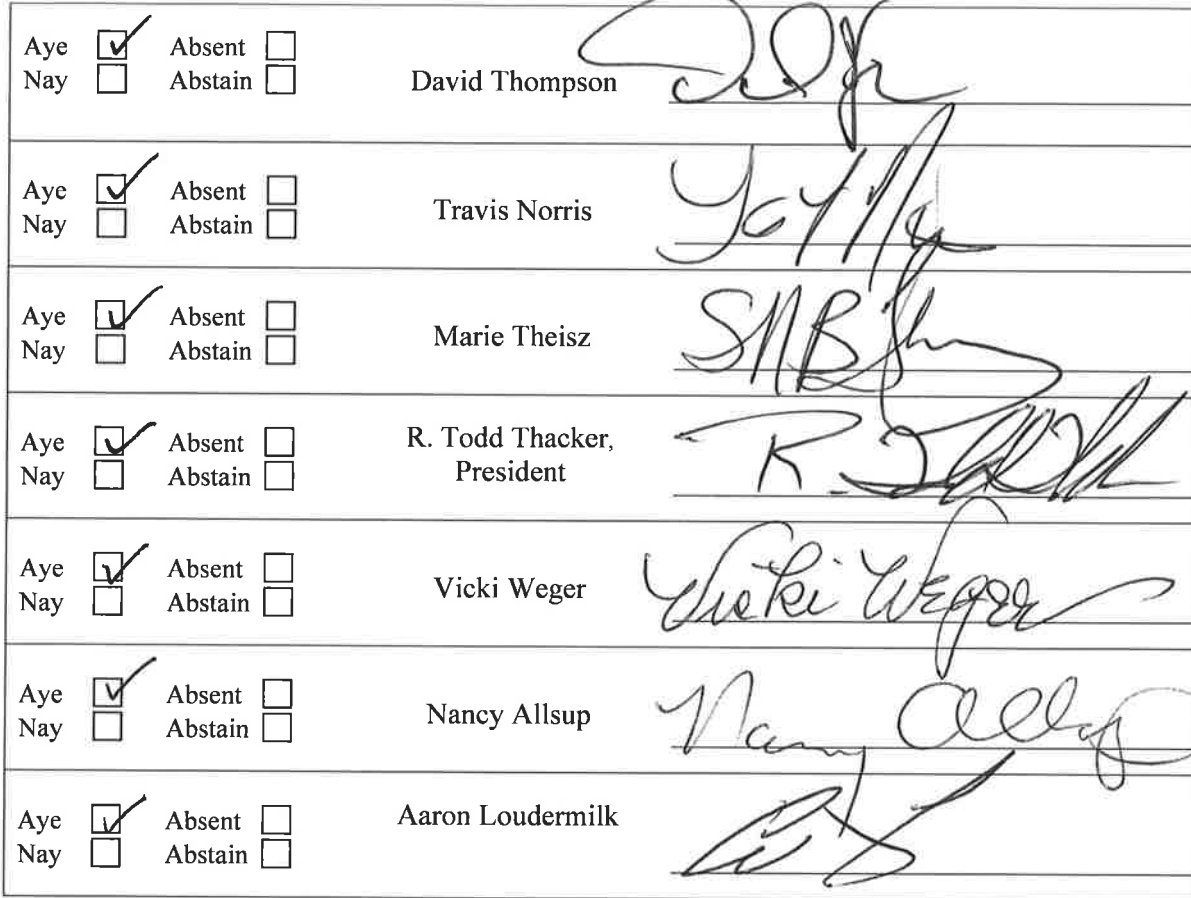 Aye Absent
Nay Abstain
David Thompson
Aye Absent
Nay Abstain
Travis Norris
Aye Absent
Nay Abstain
Marie Theisz
Aye Absent
Nay Abstain
R. Todd Thacker,
President
R. Todd Th
Aye Absent
Nay Abstain
Vicki Weger
Vicki Weger
Aye Absent
Nay Abstain
Nancy Allsup
Nancy Allsup
Aye Absent
Nay Abstain
Aaron Loudermilk